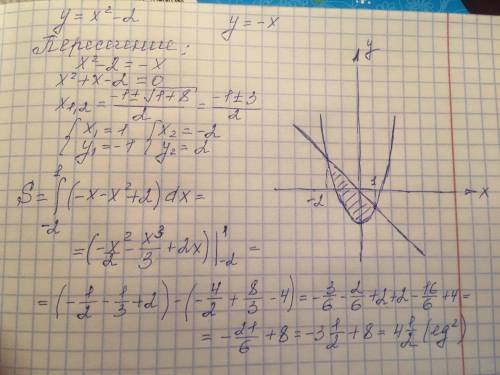 y = x² - 2    y = -x
Пересечение:
x² - 2 = -x
x² + x - 2 = 0
x₁,₂ = (-1 ± √(1+8))/2 = (-1 ± 3)/2
{ x₁ = 1    { x₂ = -2
{ y₁ = -1    { y₂ = 2
S = ∫₋₂¹ (-x - x² + 2) dx =
= (-x²/2 - x³/3 + 2x) |₋₂¹ =
= (-1/2 - 1/3 + 2) - (-4/2 + 8/3 - 4) = -3/6 - 2/6 + 2 + 2 - 16/6 + 4 =
= -21/6 + 8 = -3 1/2 + 8 = 4 1/2 (ед²)
y
x
-2
1